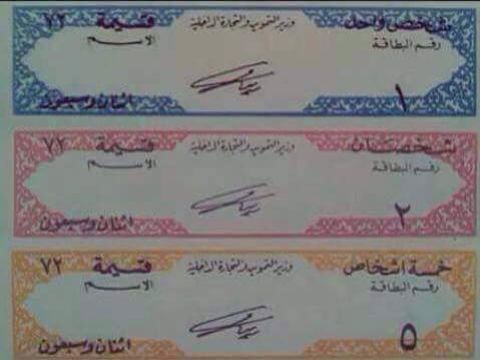 شخص واحد وزير التموين والتجارة الداخلية قسيمة ٧٢
رقم البطاقة الاسم
١ اثنان وسبعون
شخصان وزير التموين والتجارة الداخلية قسيمة ٧٢
رقم البطاقة الاسم
٢ اثنان وسبعون
خمسة اشخاص وزير التموين والتجارة الداخلية قسيمة ٧٢
رقم البطاقة الاسم
٥ اثنان وسبعون